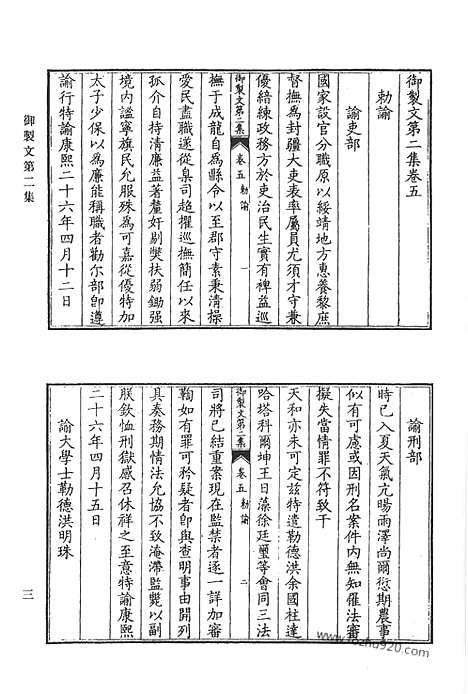 御製文第二集卷五
勅諭
諭吏部
國家設官分職原以綏靖地方惠養黎庶
督撫為封疆大吏表率屬員尤須才守兼
優緒練政務方於吏治民生實有裨益巡
御製文第二集 卷五 勅諭 一
撫于成龍自為縣令以至郡守素秉清操
愛民盡職遂從臬司超擢巡撫簡任以來
孤介自持清廉益著釐奸剔獘扶弱鋤强
境内謐寧旗民允服殊為可嘉從優特加
太子少保以為廉能稱職者勸尔部即遵
諭行特諭康熙二十六年四月十二日
御製文第二集
諭刑部
時已入夏天氣亢暘雨澤尚爾愆期農事
似有可慮或因刑名案件内無知罹法審
擬失當情罪不符致干
天和亦未可定兹特遣勒德洪余國柱達
哈塔科爾坤王日藻徐廷璽等會同三法
御製文第二集 卷五 勅諭 二
司將已結重案現在監禁者逐一詳加審
鞫如有罪可矜疑者即與查明事由開列
具奏務期情法允協不致淹滯監斃以副
朕欽恤刑獄感召休祥之至意特諭康熙
二十六年四月十五日
諭大學士勒德洪明珠
三